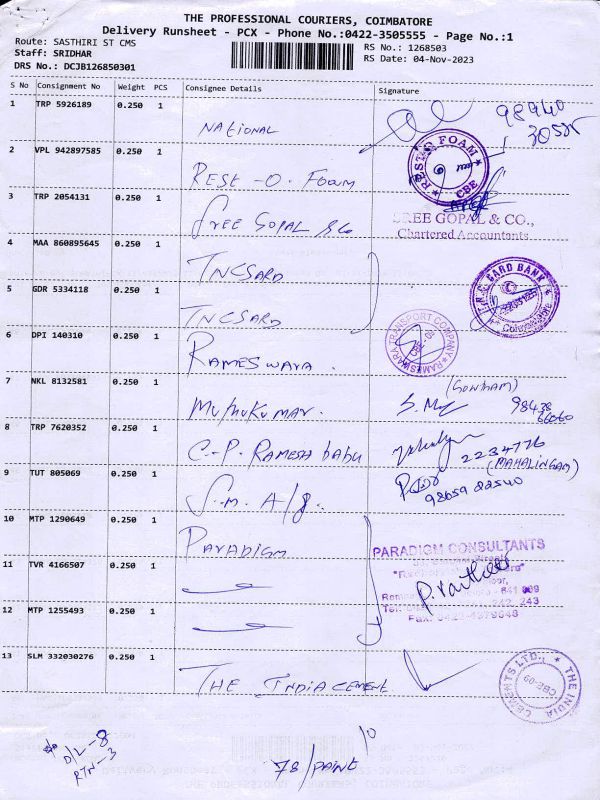 THE PROFESSIONAL COURIERS, COIMBATORE
Delivery Runsheet - PCX - Phone No.:0422-3505555 - Page No.:1
Route: SASTHIRI ST CMS
Staff: SRIDHAR
DRS No.: DCJB126850301
RS No.: 1268503
RS Date: 04-Nov-2023
S No Consignment No Weight PCS Consignee Details Signature
1 TRP 5926189 0.250 1 National
98940
2 VPL 942897585 0.250 1 Rest-O-Foam
RESTO FOAM CBE
3 TRP 2054131 0.250 1 Sree Gopal & Co
SREE GOPAL & CO.,
Chartered Accountants
4 MAA 860895645 0.250 1 TNCSARD
CARD BANK
5 GDR 5334118 0.250 1 TNCSARD
6 DPI 140310 0.250 1 Rameswara
RAMESWARA TRANSPORT COMPANY
7 NKL 8132581 0.250 1 Muthukumar.
(Gowtham)
98438
8 TRP 7620352 0.250 1 C.P. Ramesh babu
2234776
(MAHALINGAM)
9 TUT 805069 0.250 1 S.M. A/g.
98659 22540
10 MTP 1290649 0.250 1 Paradigm
PARADIGM CONSULTANTS
11 TVR 4166507 0.250 1
12 MTP 1255493 0.250 1
13 SLM 332030276 0.250 1 The India Cement
THE INDIA CEMENTS LTD., CBE-09
D/L-8
RTN-3
10
78/